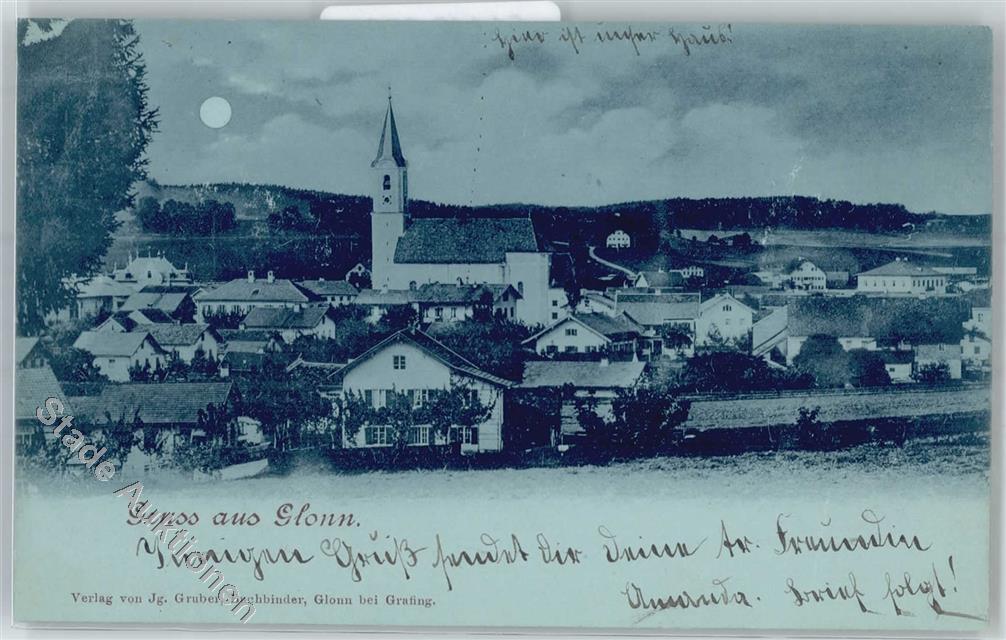 Hier ist unser Haus!
Gruss aus Glonn.
Innigen Gruß sendet dir deine tr. Freundin
Amanda. Brief folgt!
Verlag von Jg. Gruber, Buchbinder, Glonn bei Grafing.
Stade Auktionen